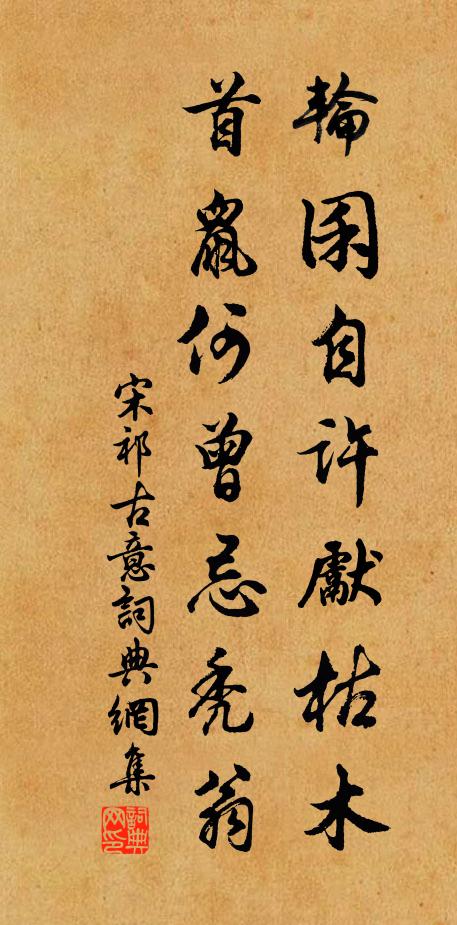 輪囷自許獻枯木
首鼠何曾忌禿翁
宋祁古意詞典網集
詞典网印